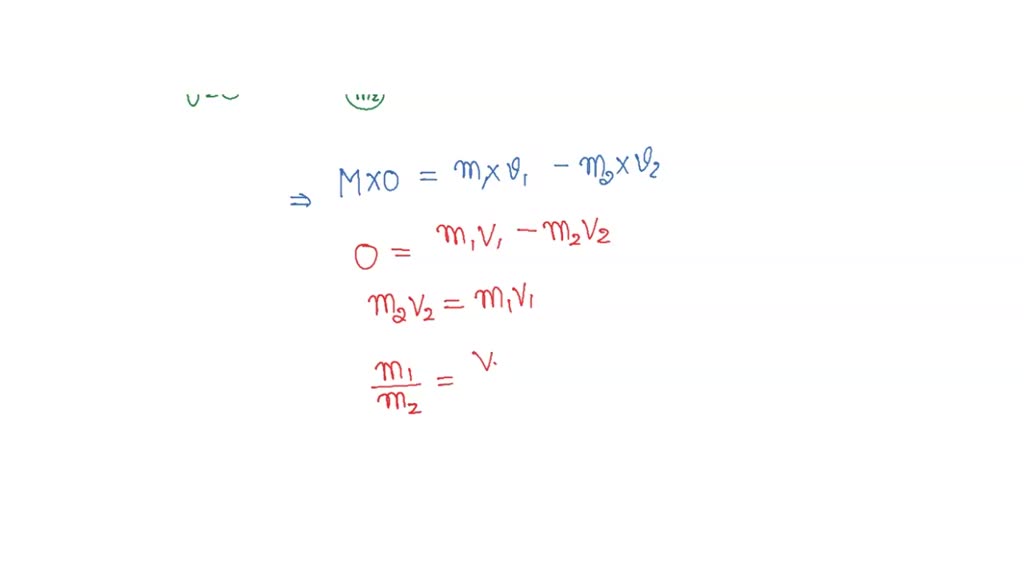 m2
⇒ M×0 = m₁×v₁ − m₂×v₂
0 = m₁v₁ − m₂v₂
m₂v₂ = m₁v₁
m₁/m₂ = v